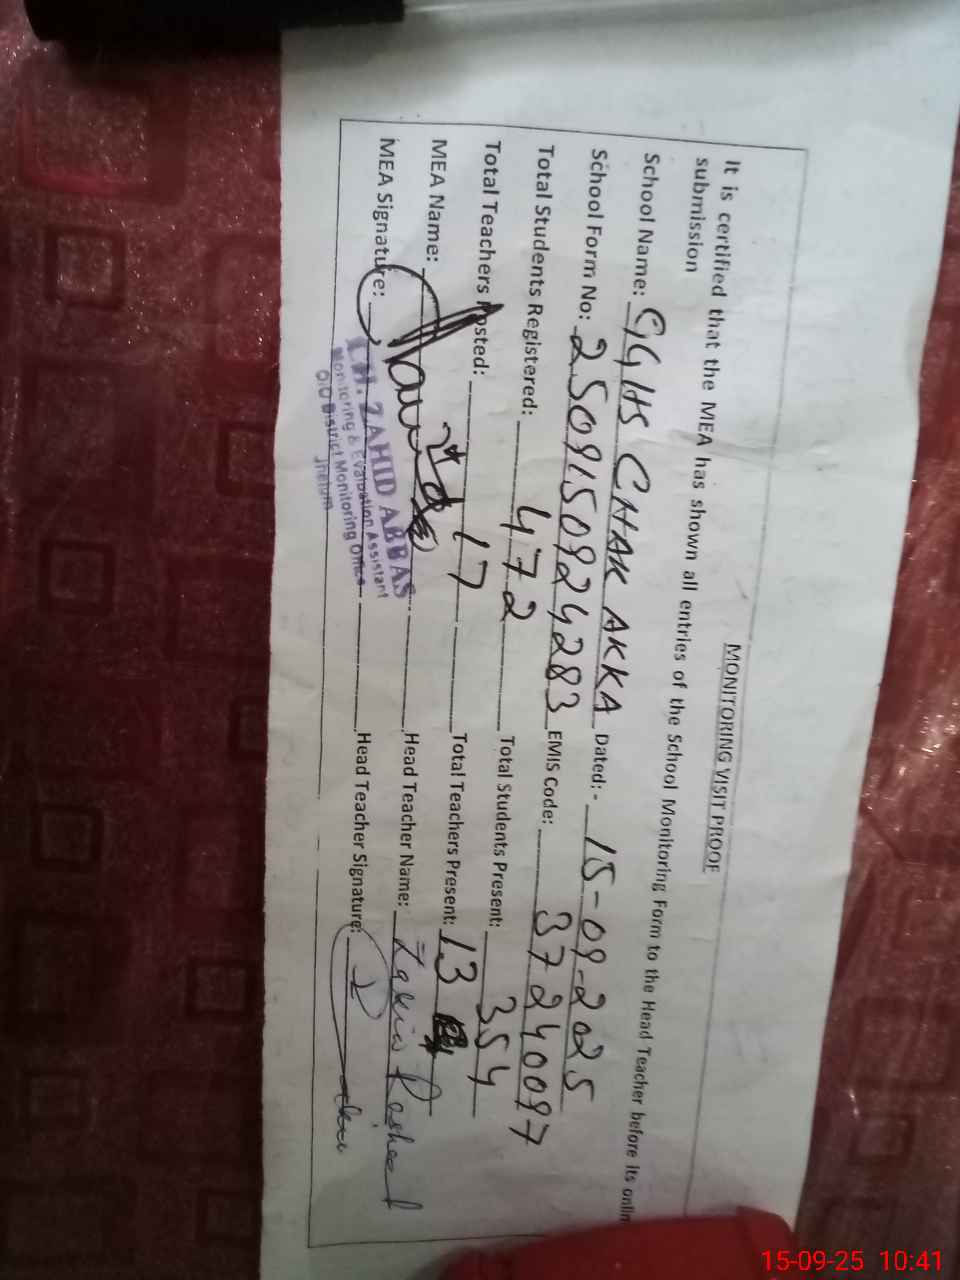 MONITORING VISIT PROOF
It is certified that the MEA has shown all entries of the School Monitoring Form to the Head Teacher before its onlin
submission
School Name: GGHS CHAK AKKA Dated:- 15-09-2025
School Form No: 2509150924283 EMIS Code: 37240097
Total Students Registered: 472 Total Students Present: 354
Total Teachers Posted: 17 Total Teachers Present: 13
MEA Name: Head Teacher Name: Zakia Rasheed
MEA Signature: Head Teacher Signature:
ZAHID ABBAS
Monitoring & Evaluation Assistant
O/O District Monitoring Office
Jhelum
15-09-25 10:41